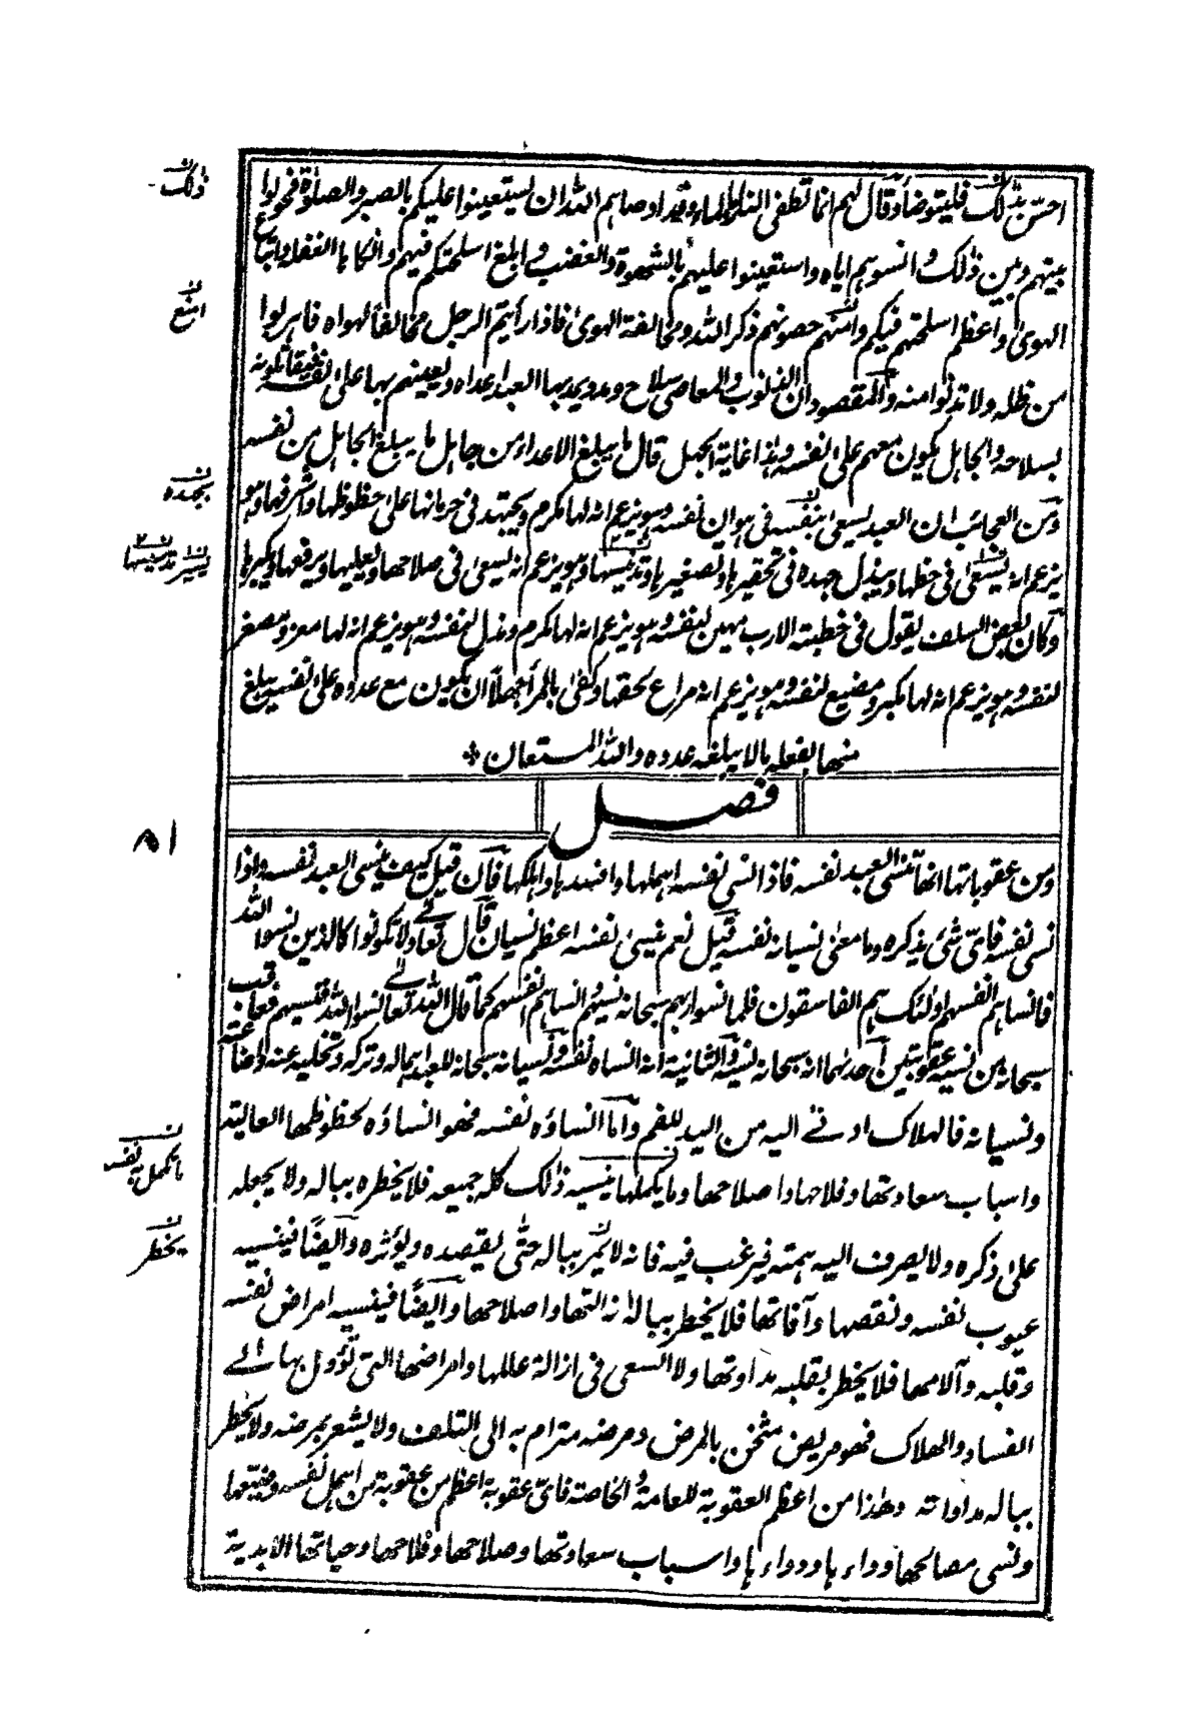 احسّ بذلك فليتوضأ وقال لهم انما تطفى النار بالماء وقد اوصاهم الله ان يستعينوا عليكم بالصبر والصلوٰة فحولوا
ذلك
بينهم وبين ذلك وانسوهم اياه واستعينوا عليهم بالشهوة والغضب وابلغ اسلحتكم فيهم وانكاها الغفلة واتباع
الهوى واعظم اسلحتهم فيكم وامنع حصونهم ذكر الله ومخالفة الهوى فاذا رأيتم الرجل مخالفاً لهواه فاهربوا
امنع
من ظله ولا تدنوا منه والمقصود ان الذنوب والمعاصى سلاح ومدد يمد بها العبد اعداه ويعينهم بها على نفسه فيقاتلونه
بسلاحه والجاهل يكون معهم على نفسه وهذا غاية الجهل قال ما يبلغ الاعداء من جاهل ما يبلغ الجاهل من نفسه
ومن العجائب ان العبد يسعى بنفسه فى هوان نفسه وهو يزعم انه لها مكرم ويجتهد فى حرمانها على حظوظها وشرفها وهو
بجهده
يزعم انه يسعى فى حظها ويبذل جهده فى تحقيرها وتصغيرها وتدنيسها وهو يزعم انه يسعى فى صلاحها ويعليها ويرفعها ويكبرها
وكان بعض السلف يقول فى خطبته الا رب مهين لنفسه وهو يزعم انه لها مكرم ومذل لنفسه وهو يزعم انه لها معز ومصغر
لنفسه وهو يزعم انه لها مكبر ومضيع لنفسه وهو يزعم انه مراع لحقها وكفى بالمرأ جهلاً ان يكون مع عدوه على نفسه يبلغ
منها بفعله ما لا يبلغه عدوه والله المستعان
فصل
٨١
ومن عقوباتها انها تنسى العبد نفسه فاذا نسى نفسه اهملها وافسدها واهلكها فان قيل كيف ينسى العبد نفسه واذا
نسى نفسه فاىّ شئ يذكره وما معنى نسيانه نفسه قيل نعم ينسى نفسه اعظم نسيان قال تعالى ولا تكونوا كالذين نسوا الله
فانساهم انفسهم اولئك هم الفاسقون فلما نسوا ربهم سبحانه نسيهم وانساهم انفسهم كما قال الله تعالى نسوا الله فنسيهم فعاقب
سبحانه من نسيه عقوبتين احدٰهما انه سبحانه نسيه والثانية انه انساه نفسه ونسيانه سبحانه للعبد اهماله وتركه وتخليه عنه واضاعته
ونسيانه فالهلاك ادنى اليه من اليد للفم وأما انساؤه نفسه فهو انساؤه لحظوظها العالية
واسباب سعادتها وفلاحها واصلاحها وما يكملها ينسيه ذلك كله جميعه فلا يخطره بباله ولا يجعله
ما تكمل به نفسه
على ذكره ولا يصرف اليه همته فيرغب فيه فانه لا يمر بباله حتّى يقصده ويؤثره وأيضًا فينسيه
يخطر
عيوب نفسه ونقصها وآفاتها فلا يخطر بباله ازالتها واصلاحها وأيضًا فينسيه امراض نفسه
وقلبه وآلامها فلا يخطر بقلبه مداوتها ولا السعى فى ازالة عللها وامراضها التى تؤول بها الى
الفساد والهلاك فهو مريض مثخن بالمرض ومرضه مترام به الى التلف ولا يشعر بمرضه ولا يخطر
بباله مداواته وهذا من اعظم العقوبة للعامة والخاصة فاىّ عقوبة اعظم من عقوبة من اهمل نفسه وضيّعها
ونسى مصالحها وداءها ودواءها واسباب سعادتها وصلاحها وفلاحها وحياتها الابدية